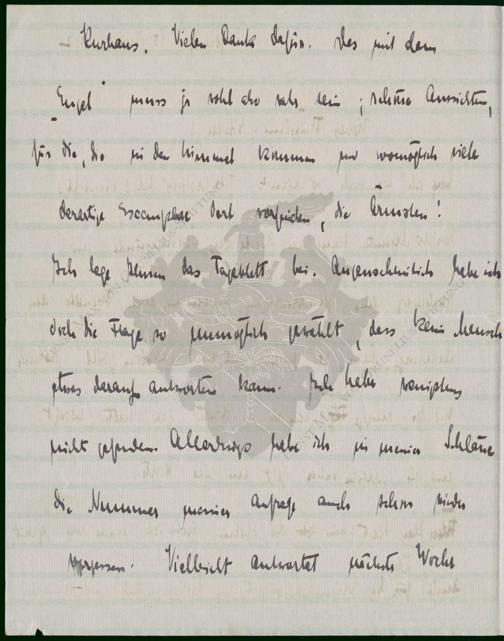 Kurhaus. Vielen Dank dafür. Das mit dem
"Engel" muss ja wohl also sehr sein; schöne Aussichten,
für die, die in den Himmel kommen und womöglich viele
derartige Exemplare dort vorfinden, die Ärmsten!
Ich lege Ihnen das Tageblatt bei. Augenscheinlich habe ich
doch die Frage so unmöglich gewählt, dass kein Mensch
etwas darauf antworten kann. Ich habe wenigstens
nicht gefunden. Allerdings habe ich in meiner Schläue
die Nummer meiner Anfrage auch schon wieder
vergessen. Vielleicht antwortet nächste Woche